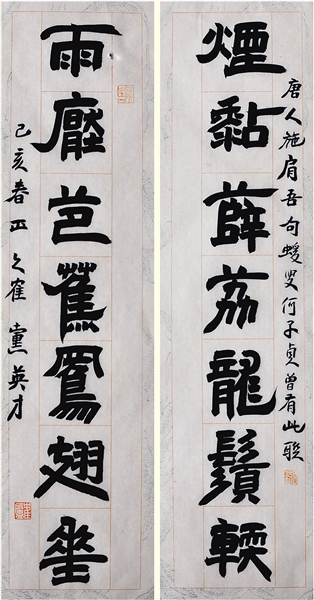 煙黏薜荔龍鬚軟
唐人施肩吾句蝯叟何子貞曾有此聯
雨壓芭蕉鳳翅垂
己亥春 黨英才